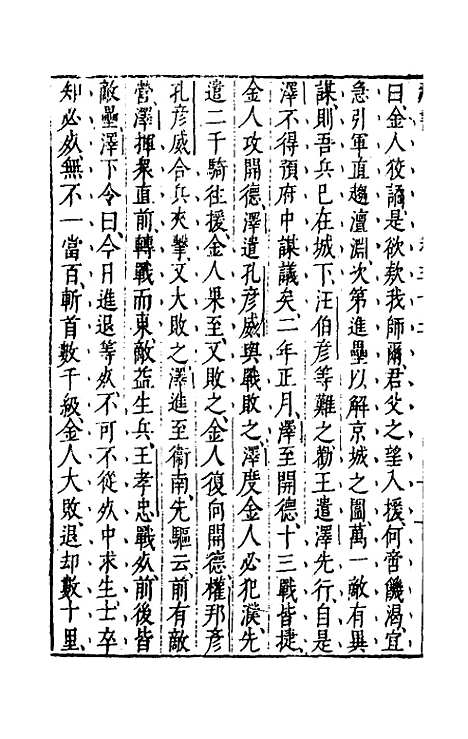 曰金人狡譎是欲款我師爾君父之望入援何啻饑渴宜
急引軍直趨澶淵次第進壘以解京城之圍萬一敵有異
謀則吾兵已在城下汪伯彦等難之勸王遣澤先行自是
澤不得預府中謀議矣二年正月澤至開德十三戰皆捷
金人攻開德澤遣孔彦威與戰敗之澤度金人必犯濮先
遣二千騎往援金人果至又敗之金人復向開德權邦彦
孔彦威合兵夾擊又大敗之澤進至衞南先驅云前有敵
營澤揮衆直前轉戰而東敵益生兵王孝忠戰死前後皆
敵壘澤下令曰今日進退等死不可不從死中求生士卒
知必死無不一當百斬首數千級金人大敗退却數十里